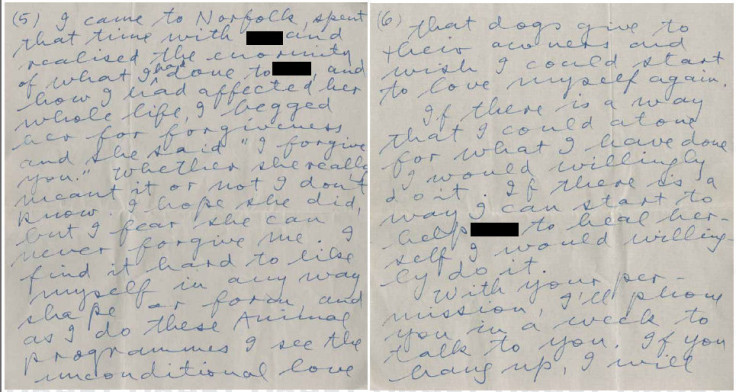 (5) I came to Norfolk, spent
that time with and
realised the enormity
of what I had done to , and
how I had affected her
whole life, I begged
her for forgiveness,
and she said "I forgive
you." Whether she really
meant it or not I don't
know. I hope she did,
but I fear she can
never forgive me. I
find it hard to like
myself in any way
shape or form, and
as I do these Animal
programmes I see the
unconditional love
(6) that dogs give to
their owners and
wish I could start
to love myself again.
If there is a way
that I could atone
for what I have done
I would willingly
do it. If there is a
way I can start to
help to heal her-
self I would willing-
ly do it.
With your per-
mission, I'll phone
you in a week to
talk to you. If you
hang up, I will